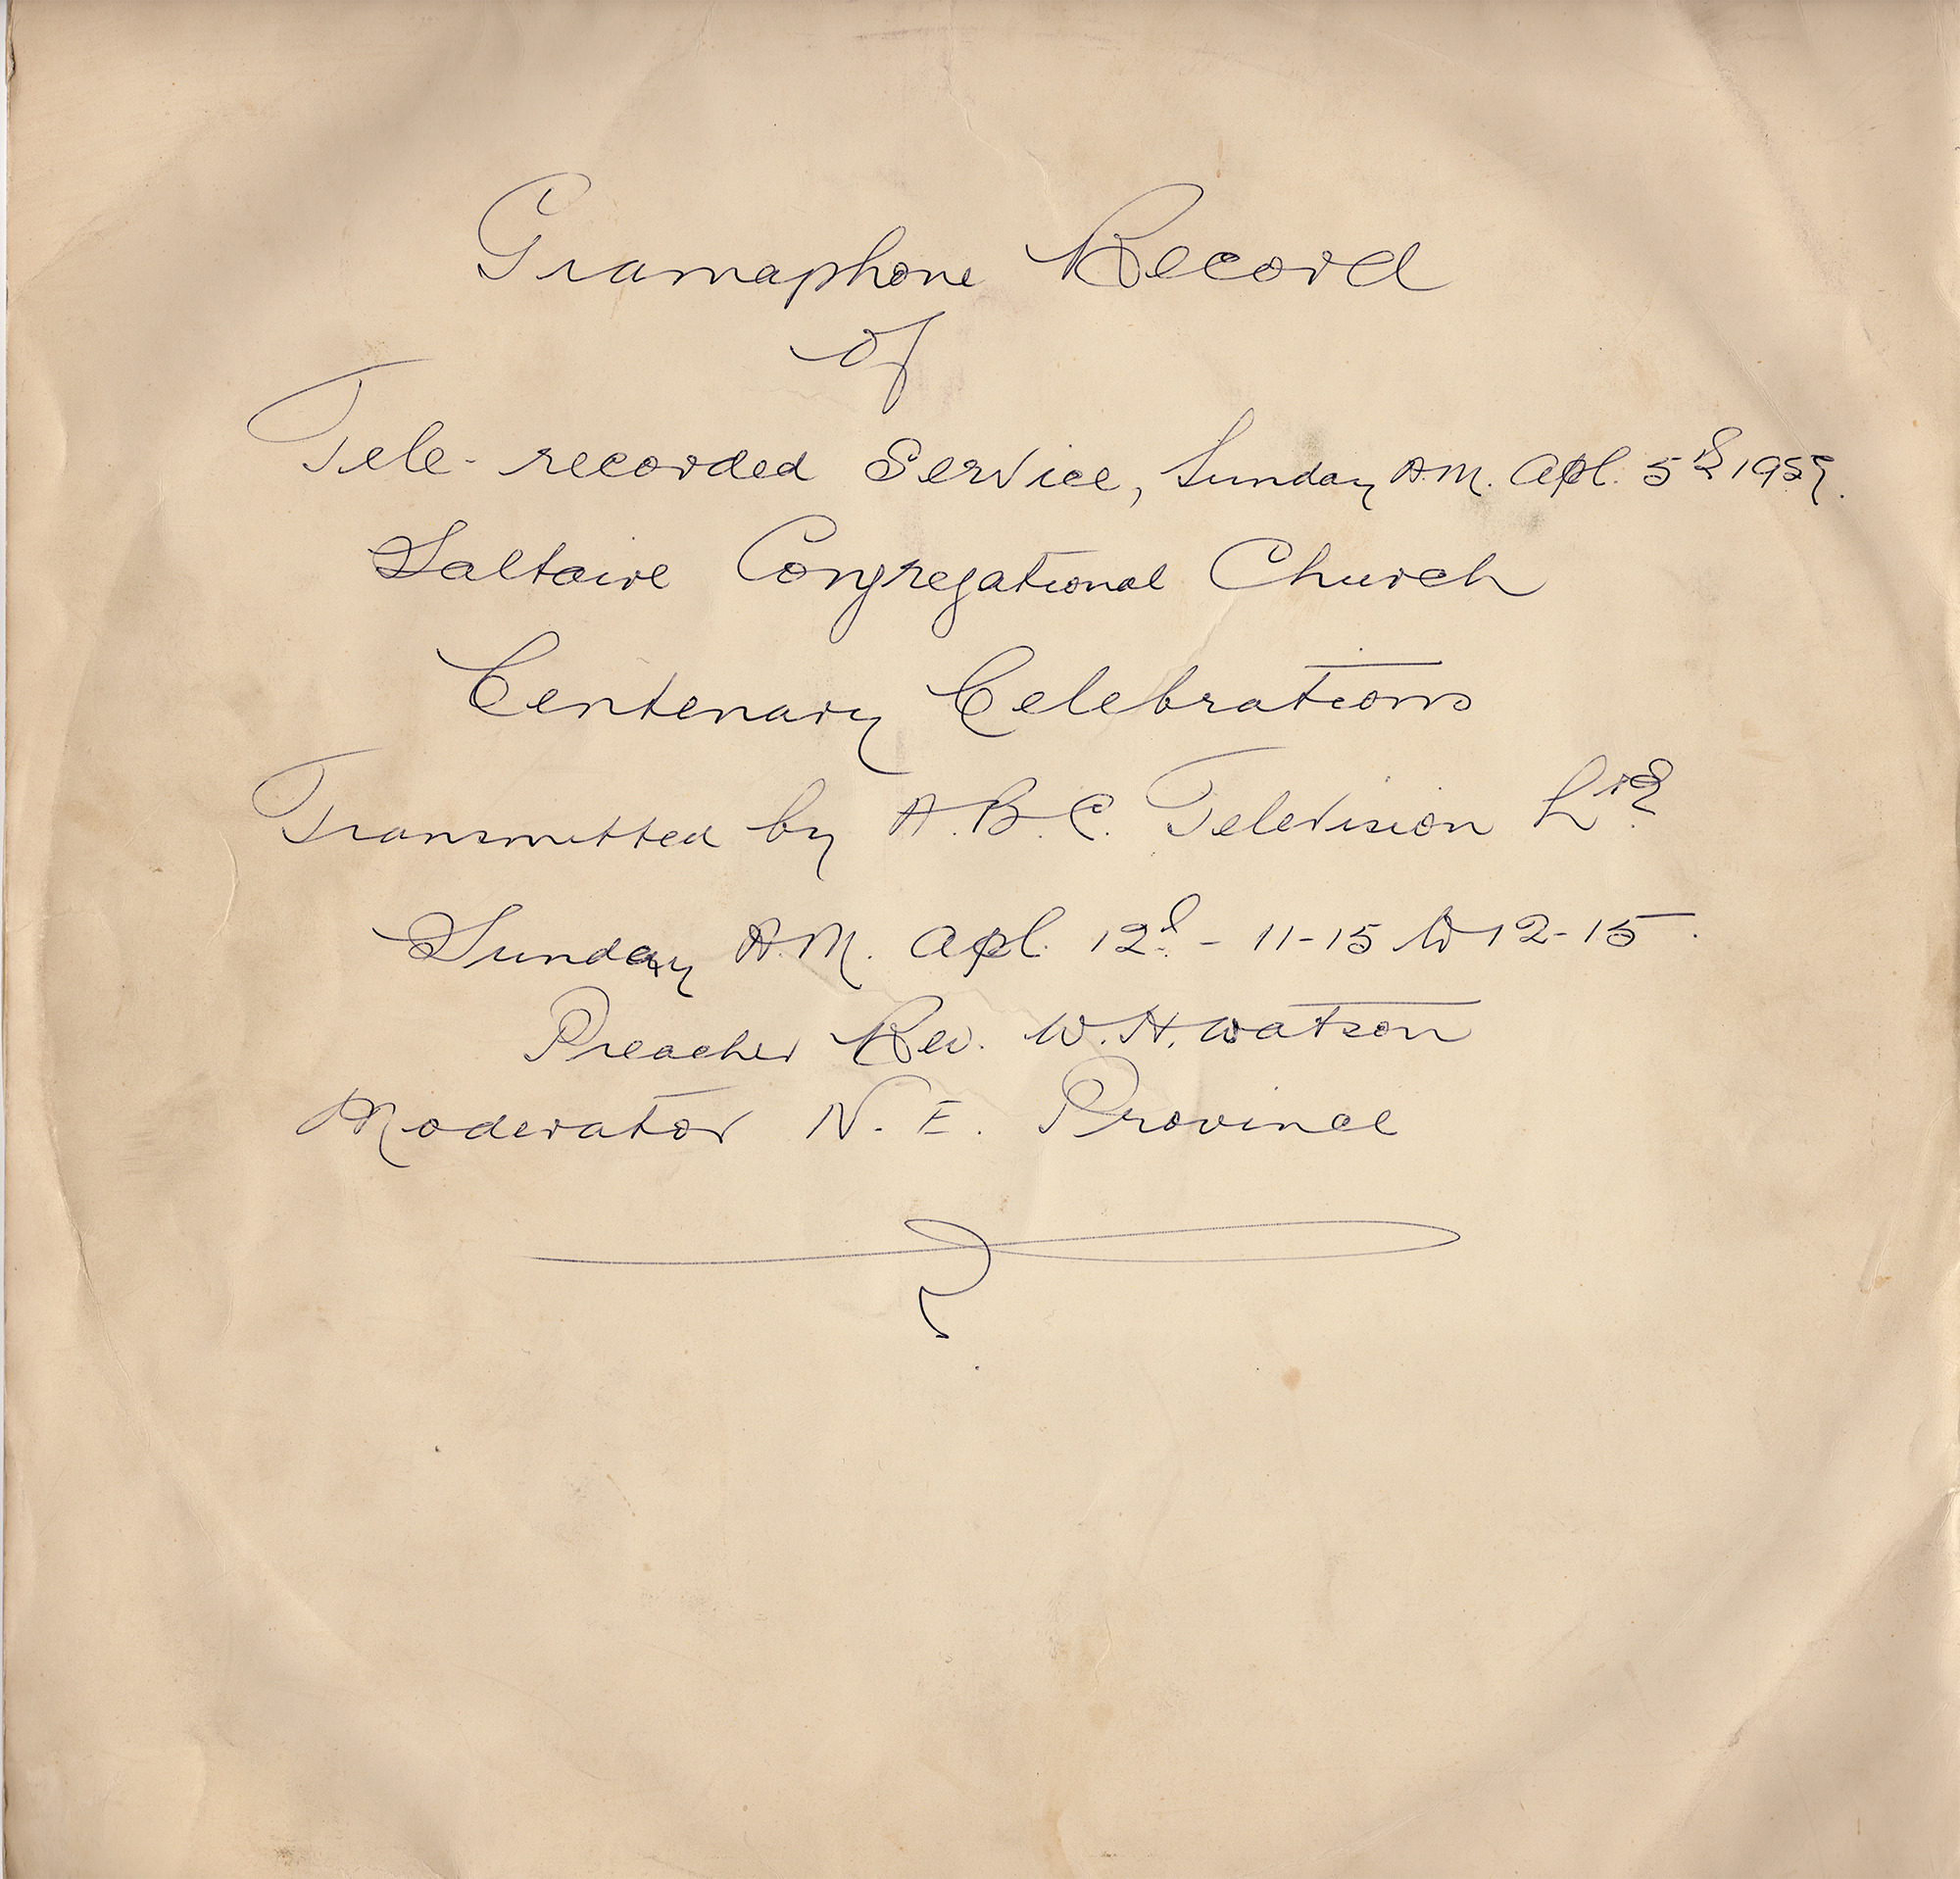 Gramaphone Record
of
Tele-recorded Service, Sunday A.M. Apl. 5th 1959.
Saltaire Congregational Church
Centenary Celebrations
Transmitted by A.B.C. Television Ltd.
Sunday A.M. Apl. 12th - 11-15 to 12-15.
Preacher Rev. W.H. Watson
Moderator N.E. Province